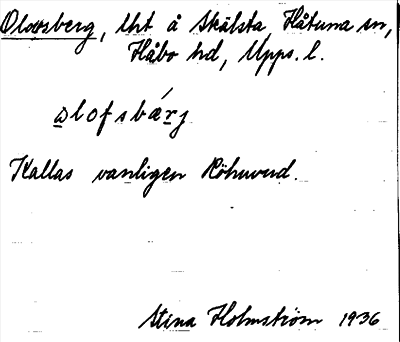 Olovsberg, lht å Skälsta, Håtuna sn,
Håbo hd, Upps. l.
olofsbærj
Kallas vanligen Röhuvud.
Stina Holmström 1936